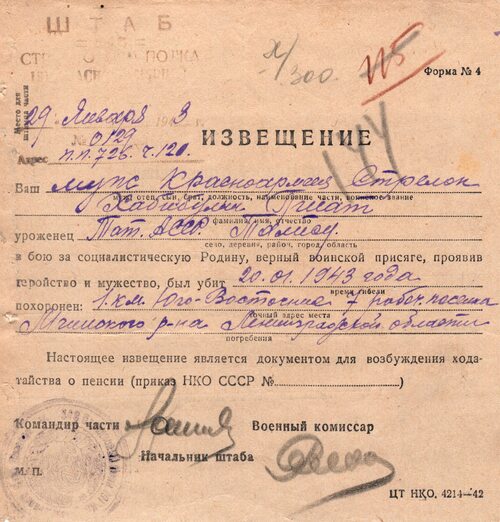 ШТАБ
ПОЛКА
Форма № 4
115
X/300
Место для
штампа части
29 Января 3
№ 0129
Адрес п.п. 726. ч. 120.
144
ИЗВЕЩЕНИЕ
Ваш муж Красноармеец Стрелок
муж, отец, сын, брат, должность, наименование части, воинское звание
Хабибулин
фамилия, имя, отчество
уроженец Тат. АССР
село, деревня, район, город, область
в бою за социалистическую Родину, верный воинской присяге, проявив
геройство и мужество, был убит 20.01.1943 года
время гибели
похоронен: 1 км. Юго-Восточнее 7 рабоч. поселка
точный адрес места
Мгинского р-на Ленинградской области
погребения
Настоящее извещение является документом для возбуждения хода-
тайства о пенсии (приказ НКО СССР № )
Командир части
Военный комиссар
Начальник штаба
М. П.
ЦТ НКО. 4214—42